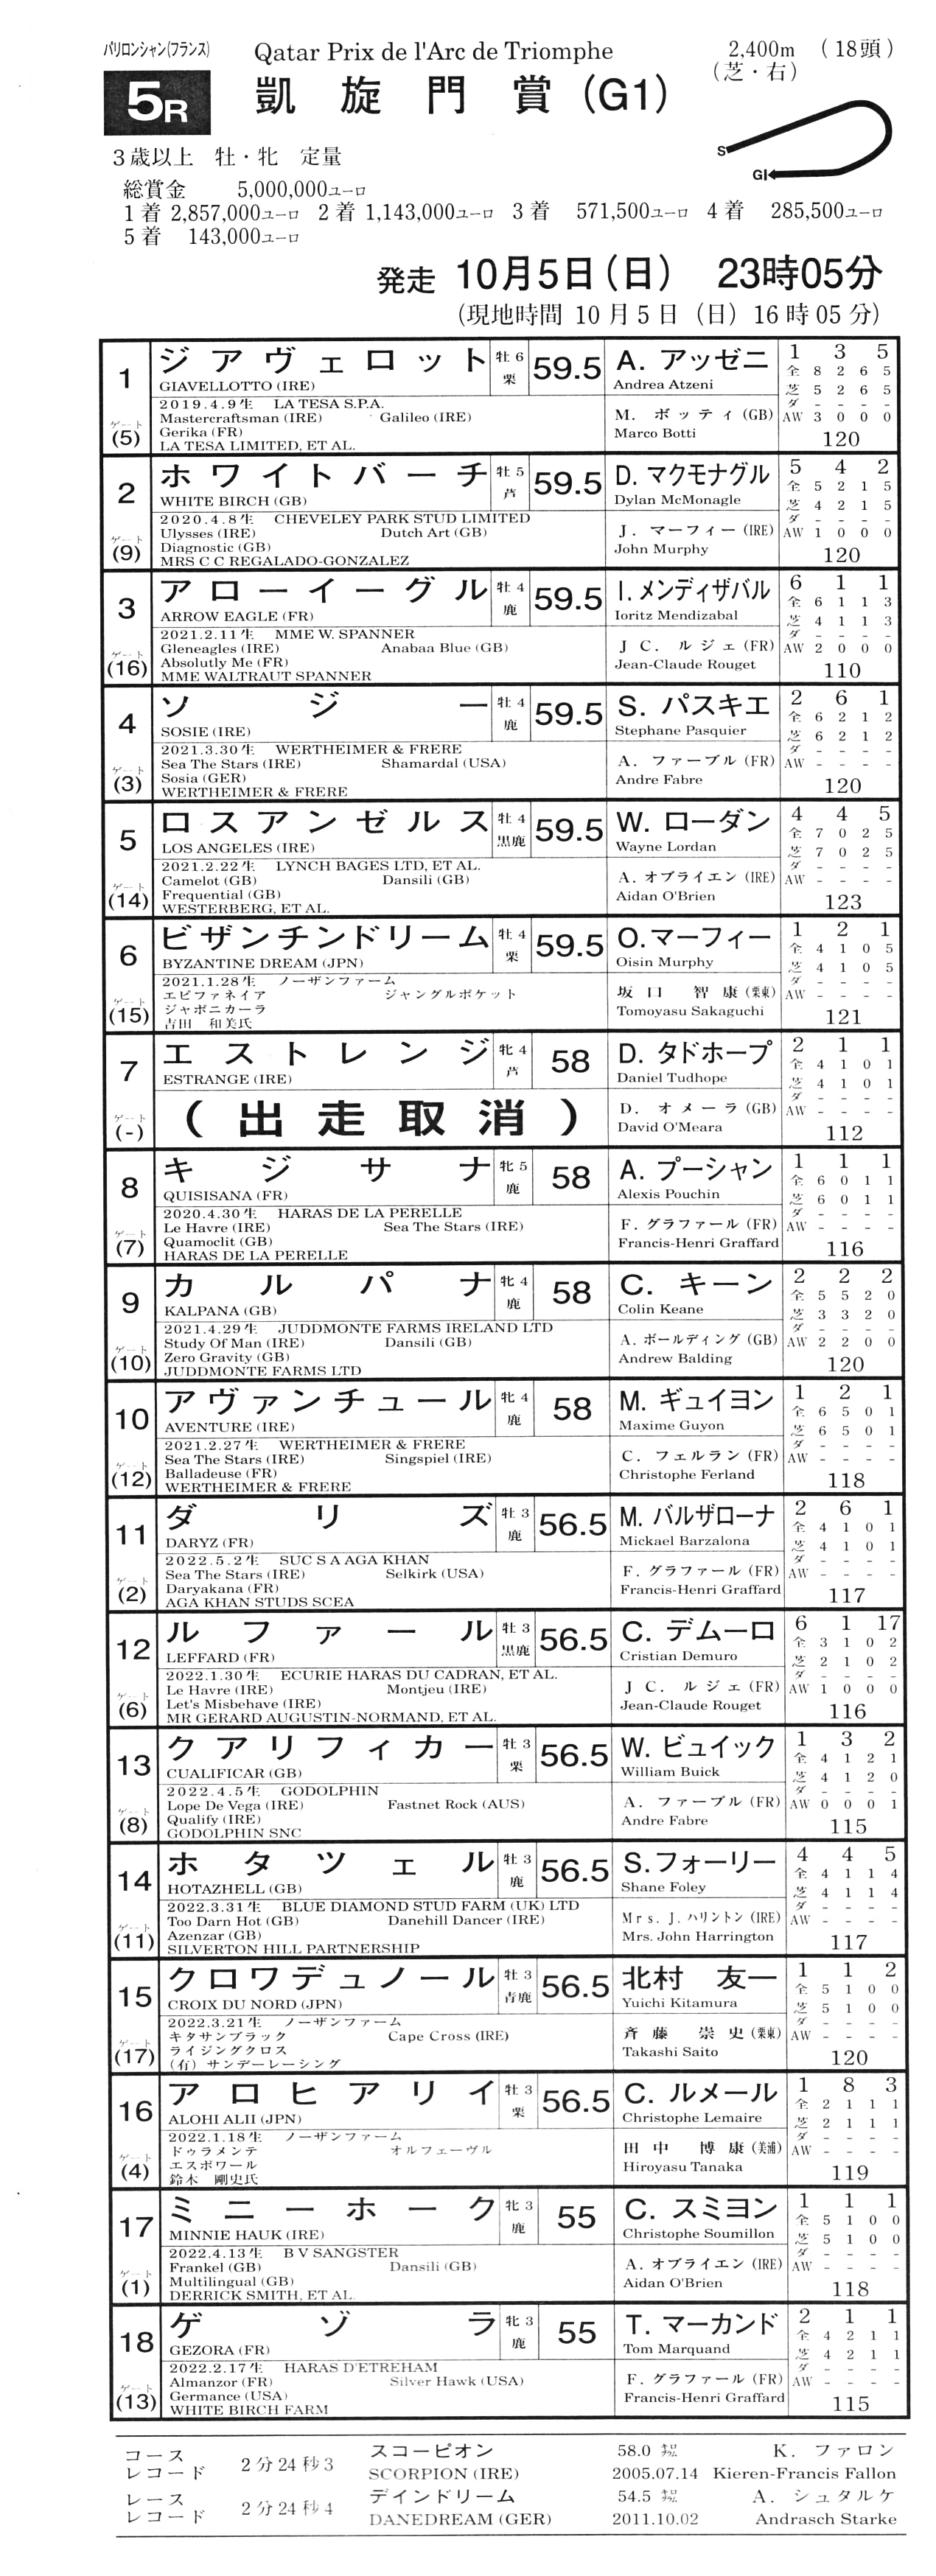 パリロンシャン(フランス) Qatar Prix de l'Arc de Triomphe 2,400m (18頭)
5R 凱旋門賞(G1) (芝・右)
S
GI
3歳以上 牡・牝 定量
総賞金 5,000,000ユーロ
1着 2,857,000ユーロ 2着 1,143,000ユーロ 3着 571,500ユーロ 4着 285,500ユーロ
5着 143,000ユーロ
発走 10月5日(日) 23時05分
(現地時間 10月5日(日)16時05分)
1 ジアヴェロット 牡6 栗 59.5 A. アッゼニ 1 3 5
GIAVELLOTTO (IRE) Andrea Atzeni 全 8 2 6 5
2019.4.9生 LA TESA S.P.A. 芝 5 2 6 5
Mastercraftsman (IRE) Galileo (IRE) M. ボッティ(GB) ダ - - - -
ゲート (5) Gerika (FR) Marco Botti AW 3 0 0 0
LA TESA LIMITED, ET AL. 120
2 ホワイトバーチ 牡5 芦 59.5 D. マクモナグル 5 4 2
WHITE BIRCH (GB) Dylan McMonagle 全 5 2 1 5
2020.4.8生 CHEVELEY PARK STUD LIMITED 芝 4 2 1 5
Ulysses (IRE) Dutch Art (GB) J. マーフィー(IRE) ダ - - - -
ゲート (9) Diagnostic (GB) John Murphy AW 1 0 0 0
MRS C C REGALADO-GONZALEZ 120
3 アローイーグル 牡4 鹿 59.5 I. メンディザバル 6 1 1
ARROW EAGLE (FR) Ioritz Mendizabal 全 6 1 1 3
2021.2.11生 MME W. SPANNER 芝 4 1 1 3
Gleneagles (IRE) Anabaa Blue (GB) J C. ルジェ(FR) ダ - - - -
ゲート (16) Absolutly Me (FR) Jean-Claude Rouget AW 2 0 0 0
MME WALTRAUT SPANNER 110
4 ソジー 牡4 鹿 59.5 S. パスキエ 2 6 1
SOSIE (IRE) Stephane Pasquier 全 6 2 1 2
2021.3.30生 WERTHEIMER & FRERE 芝 6 2 1 2
Sea The Stars (IRE) Shamardal (USA) A. ファーブル(FR) ダ - - - -
ゲート (3) Sosia (GER) Andre Fabre AW - - - -
WERTHEIMER & FRERE 120
5 ロスアンゼルス 牡4 黒鹿 59.5 W. ローダン 4 4 5
LOS ANGELES (IRE) Wayne Lordan 全 7 0 2 5
2021.2.22生 LYNCH BAGES LTD, ET AL. 芝 7 0 2 5
Camelot (GB) Dansili (GB) A. オブライエン(IRE) ダ - - - -
ゲート (14) Frequential (GB) Aidan O'Brien AW - - - -
WESTERBERG, ET AL. 123
6 ビザンチンドリーム 牡4 栗 59.5 O.マーフィー 1 2 1
BYZANTINE DREAM (JPN) Oisin Murphy 全 4 1 0 5
2021.1.28生 ノーザンファーム 芝 4 1 0 5
エピファネイア ジャングルポケット 坂口 智康(栗東) ダ - - - -
ゲート (15) ジャポニカーラ Tomoyasu Sakaguchi AW - - - -
吉田 和美氏 121
7 エストレンジ 牝4 芦 58 D. タドホープ 2 1 1
ESTRANGE (IRE) Daniel Tudhope 全 4 1 0 1
芝 4 1 0 1
(出走取消) D. オメーラ(GB) ダ - - - -
ゲート (-) David O'Meara AW - - - -
112
8 キジサナ 牝5 鹿 58 A. プーシャン 1 1 1
QUISISANA (FR) Alexis Pouchin 全 6 0 1 1
2020.4.30生 HARAS DE LA PERELLE 芝 6 0 1 1
Le Havre (IRE) Sea The Stars (IRE) F. グラファール(FR) ダ - - - -
ゲート (7) Quamoclit (GB) Francis-Henri Graffard AW - - - -
HARAS DE LA PERELLE 116
9 カルパナ 牝4 鹿 58 C. キーン 2 2 2
KALPANA (GB) Colin Keane 全 5 5 2 0
2021.4.29生 JUDDMONTE FARMS IRELAND LTD 芝 3 3 2 0
Study Of Man (IRE) Dansili (GB) A. ボールディング(GB) ダ - - - -
ゲート (10) Zero Gravity (GB) Andrew Balding AW 2 2 0 0
JUDDMONTE FARMS LTD 120
10 アヴァンチュール 牝4 鹿 58 M. ギュイヨン 1 2 1
AVENTURE (IRE) Maxime Guyon 全 6 5 0 1
2021.2.27生 WERTHEIMER & FRERE 芝 6 5 0 1
Sea The Stars (IRE) Singspiel (IRE) C. フェルラン(FR) ダ - - - -
ゲート (12) Balladeuse (FR) Christophe Ferland AW - - - -
WERTHEIMER & FRERE 118
11 ダリズ 牡3 鹿 56.5 M. バルザローナ 2 6 1
DARYZ (FR) Mickael Barzalona 全 4 1 0 1
2022.5.2生 SUC S A AGA KHAN 芝 4 1 0 1
Sea The Stars (IRE) Selkirk (USA) F. グラファール(FR) ダ - - - -
ゲート (2) Daryakana (FR) Francis-Henri Graffard AW - - - -
AGA KHAN STUDS SCEA 117
12 ルファール 牡3 黒鹿 56.5 C. デムーロ 6 1 17
LEFFARD (FR) Cristian Demuro 全 3 1 0 2
2022.1.30生 ECURIE HARAS DU CADRAN, ET AL. 芝 2 1 0 2
Le Havre (IRE) Montjeu (IRE) J C. ルジェ(FR) ダ - - - -
ゲート (6) Let's Misbehave (IRE) Jean-Claude Rouget AW 1 0 0 0
MR GERARD AUGUSTIN-NORMAND, ET AL. 116
13 クアリフィカー 牡3 栗 56.5 W. ビュイック 1 3 2
CUALIFICAR (GB) William Buick 全 4 1 2 1
2022.4.5生 GODOLPHIN 芝 4 1 2 0
Lope De Vega (IRE) Fastnet Rock (AUS) A. ファーブル(FR) ダ - - - -
ゲート (8) Qualify (IRE) Andre Fabre AW 0 0 0 1
GODOLPHIN SNC 115
14 ホタツェル 牡3 鹿 56.5 S.フォーリー 4 4 5
HOTAZHELL (GB) Shane Foley 全 4 1 1 4
2022.3.31生 BLUE DIAMOND STUD FARM (UK) LTD 芝 4 1 1 4
Too Darn Hot (GB) Danehill Dancer (IRE) Mrs. J. ハリントン(IRE) ダ - - - -
ゲート (11) Azenzar (GB) Mrs. John Harrington AW - - - -
SILVERTON HILL PARTNERSHIP 117
15 クロワデュノール 牡3 青鹿 56.5 北村 友一 1 1 2
CROIX DU NORD (JPN) Yuichi Kitamura 全 5 1 0 0
2022.3.21生 ノーザンファーム 芝 5 1 0 0
キタサンブラック Cape Cross (IRE) 斉藤 崇史(栗東) ダ - - - -
ゲート (17) ライジングクロス Takashi Saito AW - - - -
(有)サンデーレーシング 120
16 アロヒアリイ 牡3 栗 56.5 C. ルメール 1 8 3
ALOHI ALII (JPN) Christophe Lemaire 全 2 1 1 1
2022.1.18生 ノーザンファーム 芝 2 1 1 1
ドゥラメンテ オルフェーヴル 田中 博康(美浦) ダ - - - -
ゲート (4) エスポワール Hiroyasu Tanaka AW - - - -
鈴木 剛史氏 119
17 ミニーホーク 牝3 鹿 55 C. スミヨン 1 1 1
MINNIE HAUK (IRE) Christophe Soumillon 全 5 1 0 0
2022.4.13生 B V SANGSTER 芝 5 1 0 0
Frankel (GB) Dansili (GB) A. オブライエン(IRE) ダ - - - -
ゲート (1) Multilingual (GB) Aidan O'Brien AW - - - -
DERRICK SMITH, ET AL. 118
18 ゲゾラ 牝3 鹿 55 T. マーカンド 2 1 1
GEZORA (FR) Tom Marquand 全 4 2 1 1
2022.2.17生 HARAS D'ETREHAM 芝 4 2 1 1
Almanzor (FR) Silver Hawk (USA) F. グラファール(FR) ダ - - - -
ゲート (13) Germance (USA) Francis-Henri Graffard AW - - - -
WHITE BIRCH FARM 115
コースレコード 2分24秒3 スコーピオン 58.0キロ K. ファロン
SCORPION (IRE) 2005.07.14 Kieren-Francis Fallon
レースレコード 2分24秒4 デインドリーム 54.5キロ A. シュタルケ
DANEDREAM (GER) 2011.10.02 Andrasch Starke